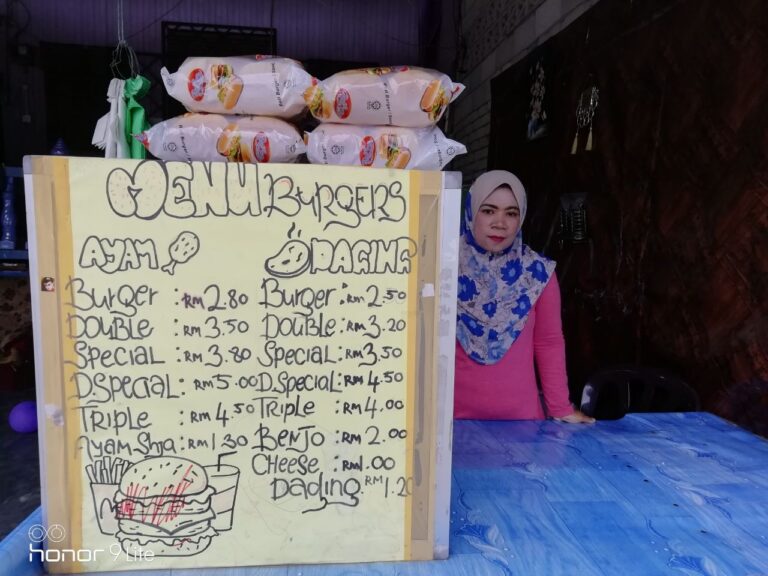 MENU BURGERS
AYAM
BURGER : RM 2.80
DOUBLE : RM 3.50
SPECIAL : RM 3.80
D.SPECIAL : RM 5.00
TRIPLE : RM 4.50
AYAM Shja RM 1.30
DAGING
BURGER : RM 2.50
DOUBLE : RM 3.20
SPECIAL : RM 3.50
D.SPECIAL : RM 4.50
TRIPLE : RM 4.00
BENJO : RM 2.00
CHEESE : RM 1.00
Daging RM 1.20
honor 9 Lite